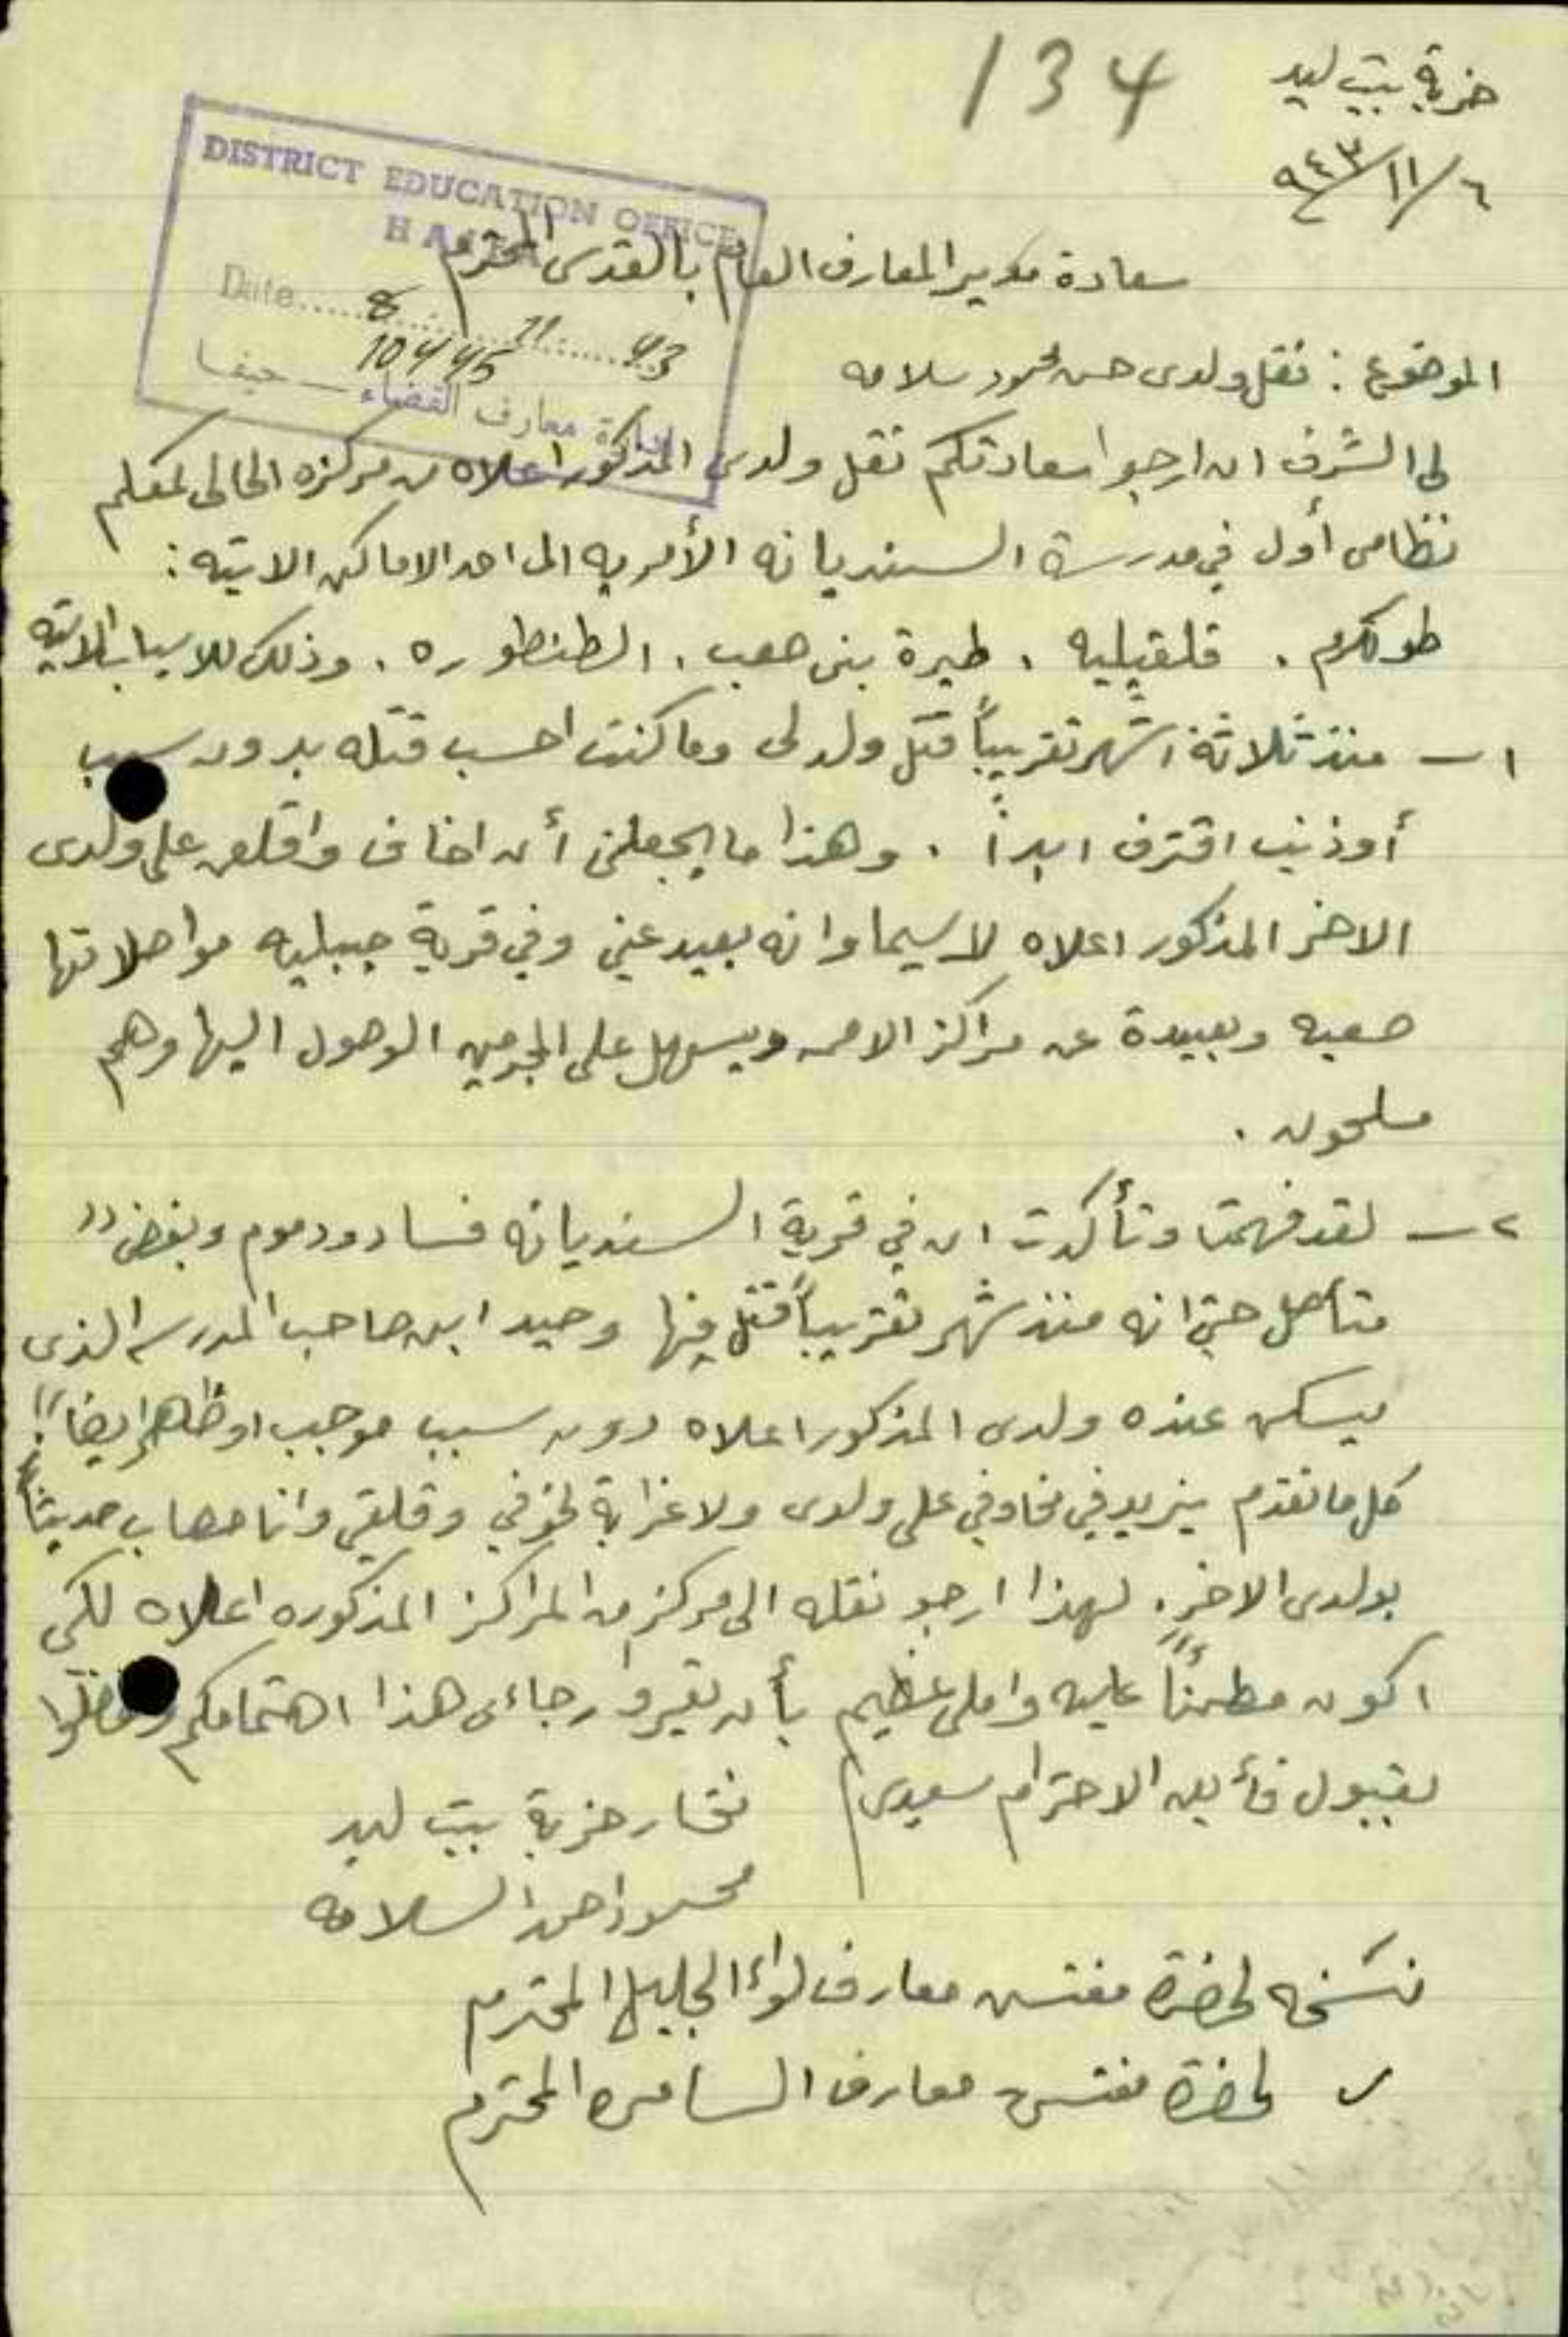 134
خربة بيت ليد
٦/١١/٩٤٣
DISTRICT EDUCATION OFFICE
HAIFA
Date.....8.....11.....43
10445
ادارة معارف القضاء — حيفا
سعادة مدير المعارف العام بالقدس المحترم
الموضوع : نقل ولدى حسن محمود سلامه
لى الشرف ان ارجوا سعادتكم نقل ولدى المذكور اعلاه من مركزه الحالى كمعلم
نظامى أول في مدرسة السنديانه الأميريه الى احد الاماكن الاتيه :
طولكرم . قلقيليه . طيرة بنى صعب . الطنطوره . وذلك للاسباب الاتيه
١ — منذ ثلاثة اشهر تقريباً قتل ولد لى وما كنت احسب قتله بدون سبب
أو ذنب اقترف ابداً . وهذا ما يجعلنى أن اخاف واقلق على ولدى
الاخر المذكور اعلاه لا سيما وانه بعيد عني وفي قرية جبليه مواصلاتها
صعبه وبعيدة عن مراكز الامن ويسهل على المجرمين الوصول اليها وهم
مسلحون .
٢ — لقد فهمت وتأكدت ان في قرية السنديانه فساد ودموم وبغض "
متأصل حتى انه منذ شهر تقريباً قتل فيها وحيد ابن صاحب المدرسه الذى
يسكن عنده ولدى المذكور اعلاه دون سبب موجب او ظاهر ايضاً !
كل ما تقدم يزيد في مخاوفي على ولدى ولا غرابة لخوفي وقلقي وانا مصاب حديثاً
بولدى الاخر . لهذا ارجو نقله الى مركز من المراكز المذكوره اعلاه لكى
اكون مطمئناً عليه واملى عظيم بأن تعيروا رجاءى هذا اهتمامكم وتفضلوا
بقبول فأيق الاحترام سيدى
مختار خربة بيت ليد
محمود احمد السلامه
نسخه لحضرة مفتش معارف لواء الجليل المحترم
لحضرة مفتش معارف السامره المحترم